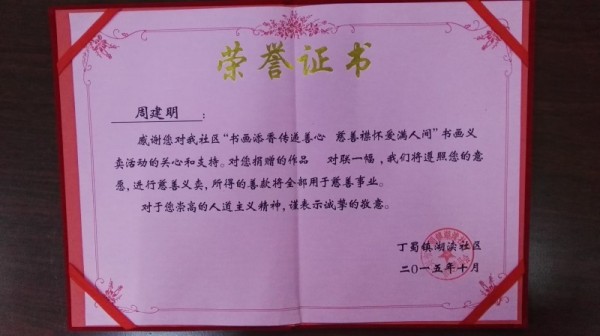 荣誉证书
周建明 :
感谢您对我社区“书画添香传递善心 慈善襟怀爱满人间”书画义
卖活动的关心和支持。对您捐赠的作品 对联一幅，我们将遵照您的意
愿，进行慈善义卖，所得的善款将全部用于慈善事业。
对于您崇高的人道主义精神，谨表示诚挚的敬意。
丁蜀镇湖㳇社区
二〇一五年十月